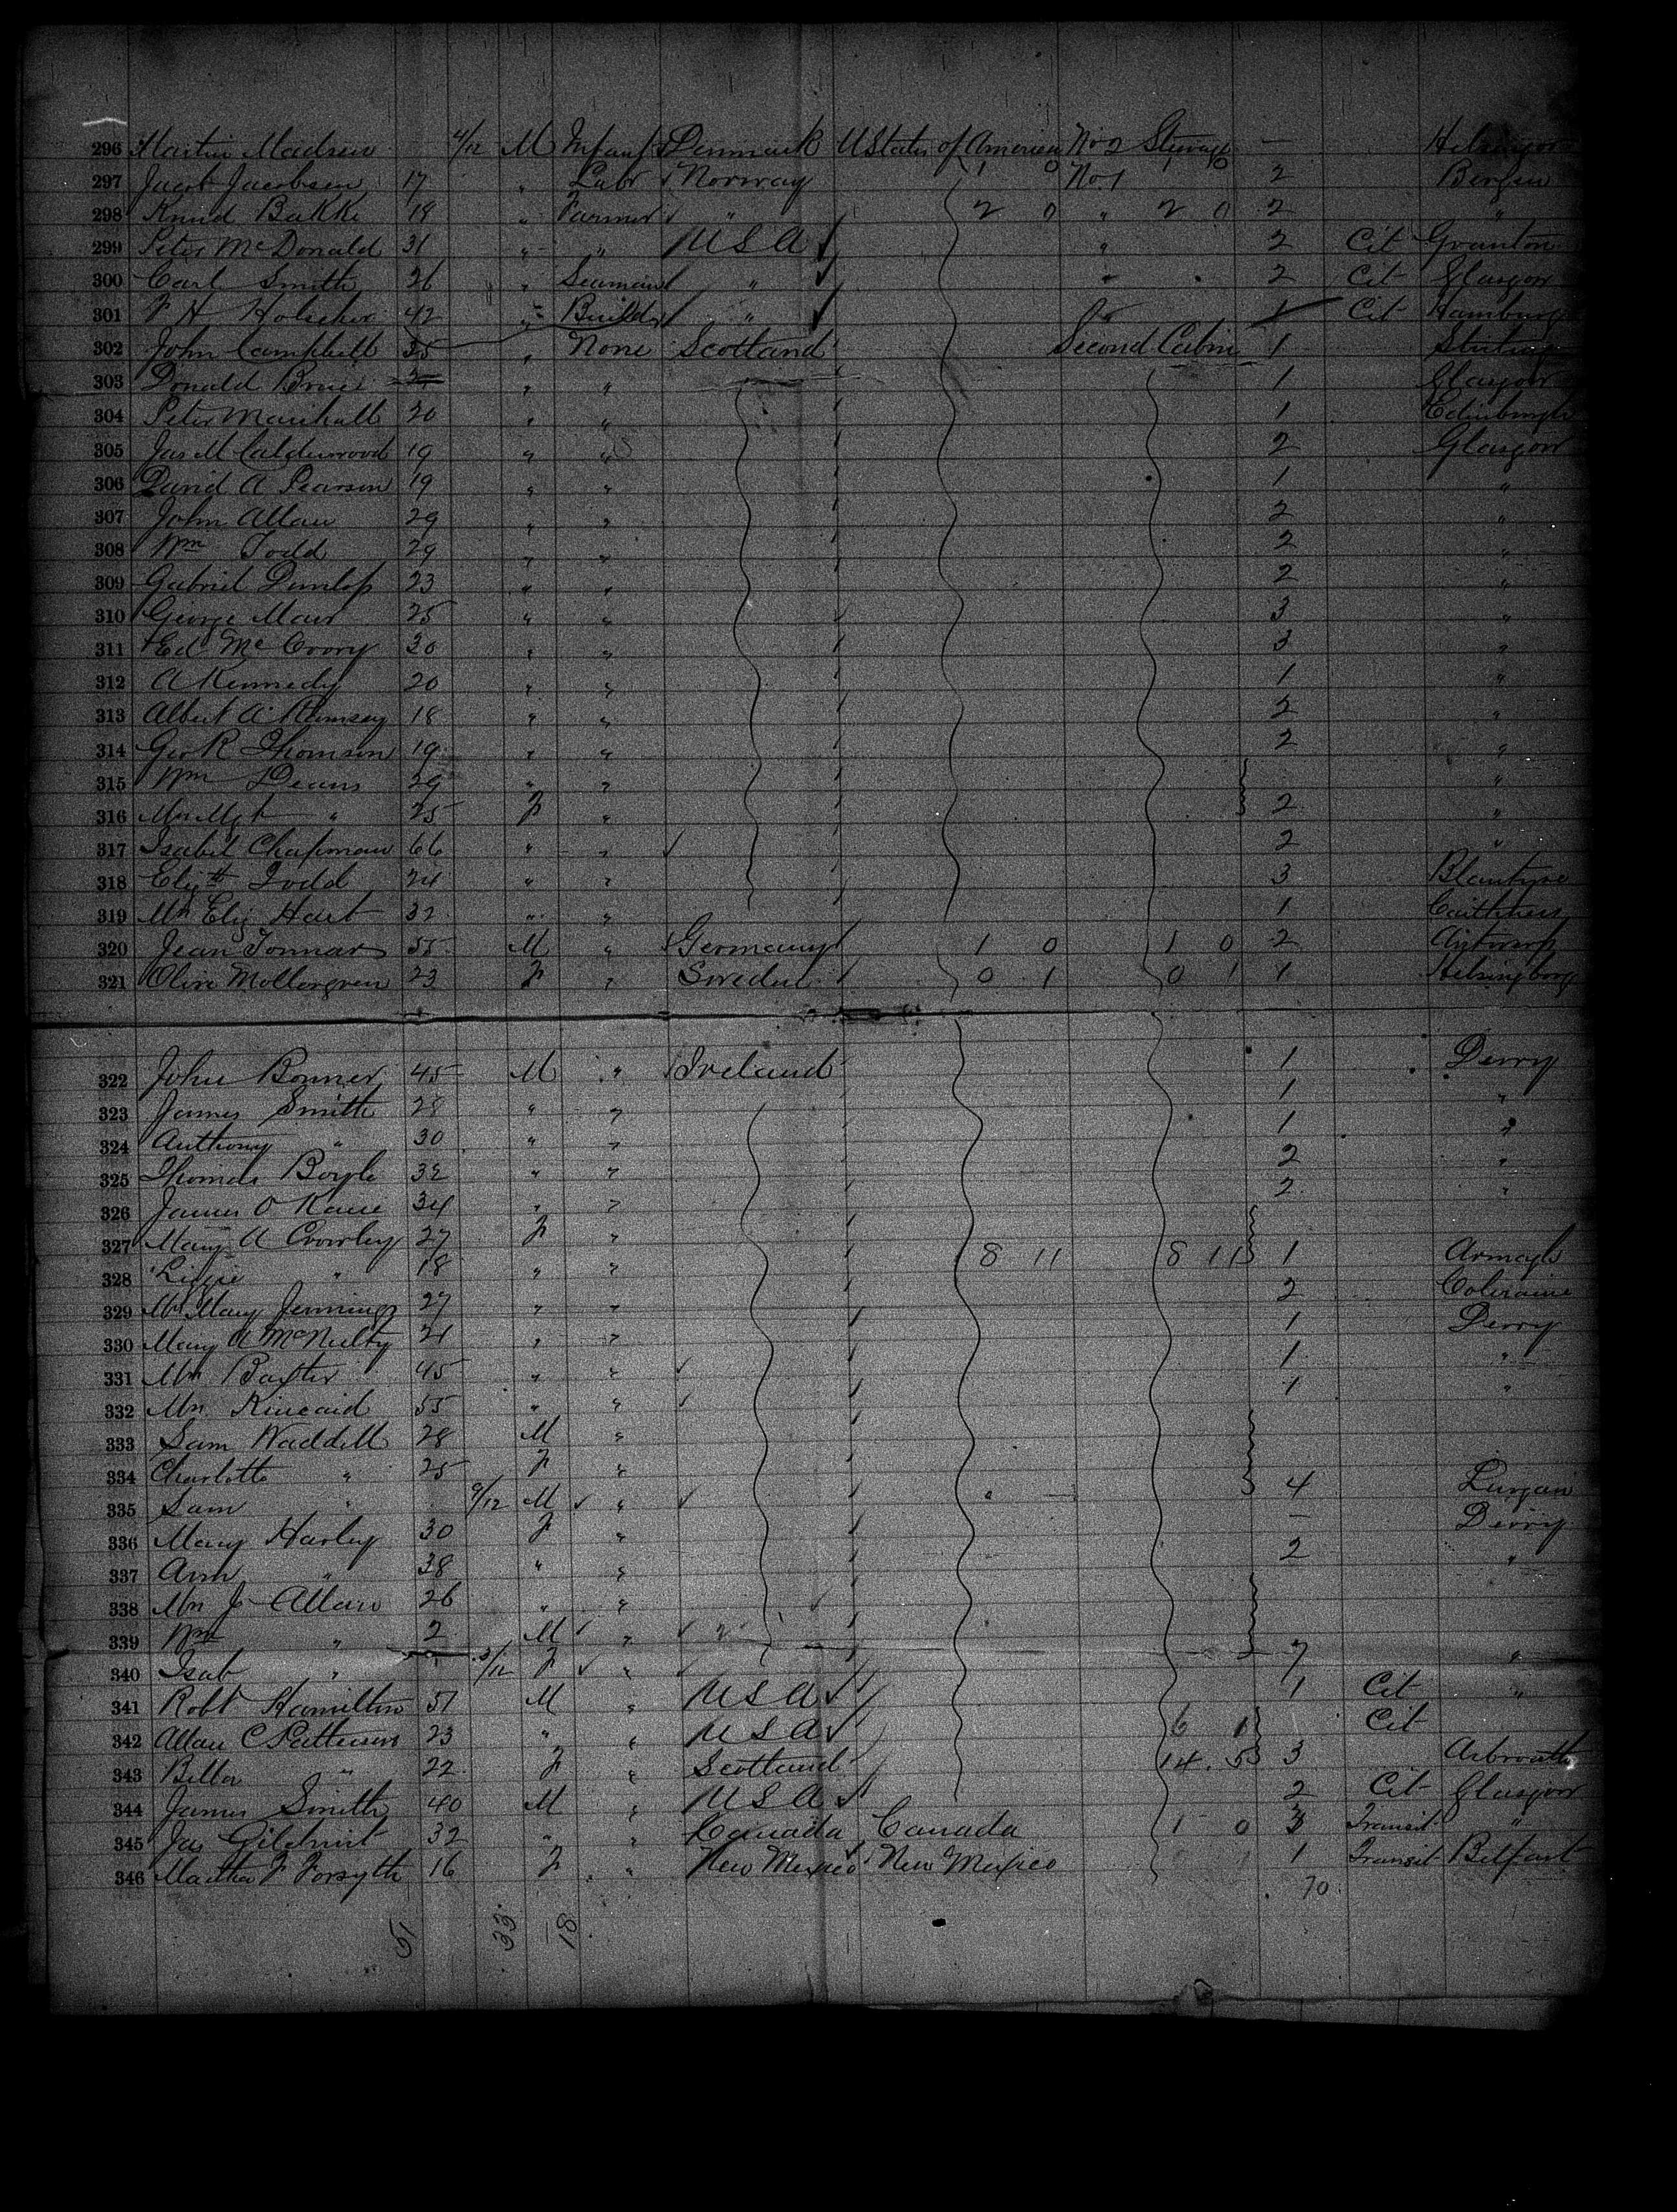 296 Martin Madsen 4/12 M Infant Denmark U States of America No 2 Steerage — Helsingor
297 Jacob Jacobsen 17 " Labr Norway 1 0 No. 1 1 0 2 Bergen
298 Knud Bakke 19 " Farmer " 2 0 " 2 0 2 "
299 Peter McDonald 31 " " U S A " 2 Cit Granton
300 Carl Smith 26 " Seaman " " " 2 Cit Glasgow
301 42 " Builder " 1 Cit Hamburg
302 John Campbell 35 " None Scotland Second Cabin 1 Stirling
303 Donald Bruce " " 1 Glasgow
304 Peter Marshall 20 " " 1 Edinburgh
305 Jas M Calderwood 19 " " 2 Glasgow
306 David A Pearson 19 " " 1 "
307 John Allan 29 " " 2 "
308 Wm Todd 29 " " 2 "
309 Gabriel Dunlop 23 " " 2 "
310 George Mair 25 " " 3 "
311 Ed McCrory 30 " " 3 "
312 A Kennedy 20 " " 1 "
313 Albert A Ramsey 18 " " 2 "
314 Geo R Thomson 19 " " 2 "
315 Wm Deans 29 " " "
316 Mrs Mgt " 25 F " 2 "
317 Isabel Chapman 66 " " 2 "
318 Elizth Todd 24 " " 3 Blantyre
319 Mrs Eliz Hart 32 " " 1 Caithness
320 Jean Tonnar 55 M " Germany 1 0 1 0 2 Antwerp
321 Olivi Mollergren 23 F " Sweden 0 1 0 1 1 Helsingborg
322 John Bonner 45 M " Ireland 1 Derry
323 James Smith 28 " " 1 "
324 Anthony " 30 " " 1 "
325 Thomas Boyle 32 " " 2 "
326 James O Kane 34 " " 2 "
327 Mary A Crowley 27 F "
328 Lizzie " 18 " " 8 11 8 11 1 Armagh
329 Mrs Mary Jennings 27 " " 2 Coleraine
330 Mary A McNulty 21 " " 1 Derry
331 Mrs Baxter 45 " " 1 "
332 Mrs Kincaid 55 " " 1 "
333 Sam Waddell 28 M "
334 Charlotte " 25 F "
335 Sam " 9/12 M " 4 Lurgan
336 Mary Harley 30 F " — Derry
337 Ann " 38 " " 2 "
338 Mrs J Allan 26 " "
339 Wm " 2 M "
340 Isab " 3/12 F " 7 "
341 Robt Hamilton 51 M " U S A 1 Cit "
342 Allan C Patterson 23 " " U S A 6 1 Cit
343 Bella " 22 F " Scotland 14 5 3 Arbroath
344 James Smith 40 M " U S A 2 Cit Glasgow
345 Jas Gilchrist 32 " " Canada Canada 1 0 3 Transit "
346 Martha F Forsyth 16 F " New Mexico New Mexico 1 Transit Belfast
70
51 33 18